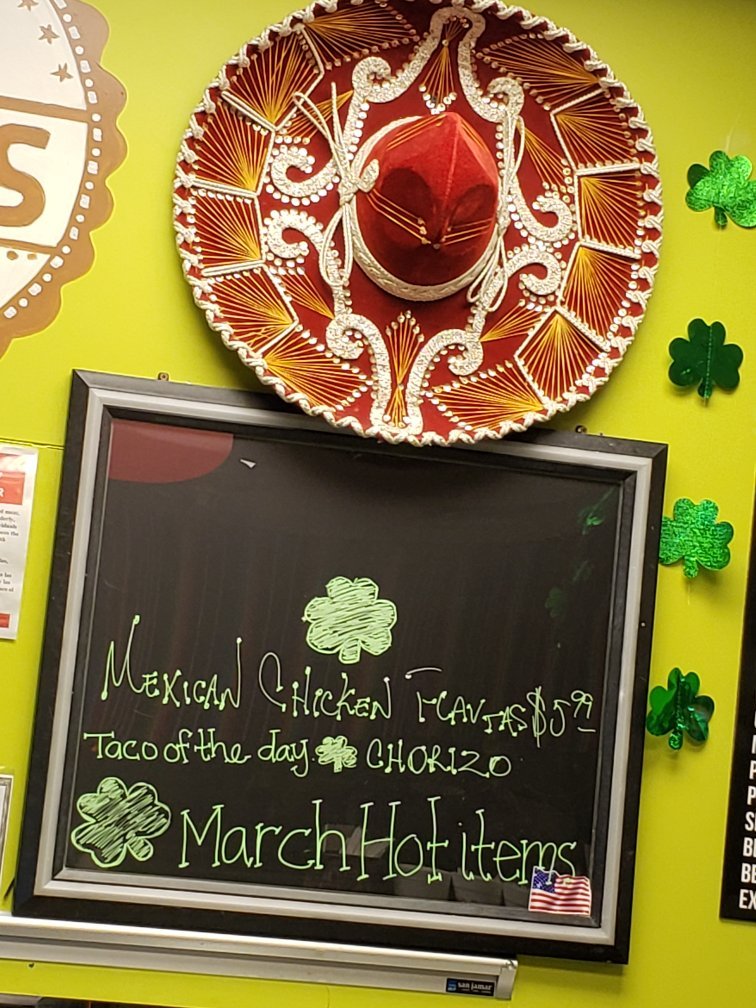 S
MEXICAN CHICKEN FLAVTAS $5.99
Taco of the day. CHORIZO
March Hot items
san jamar